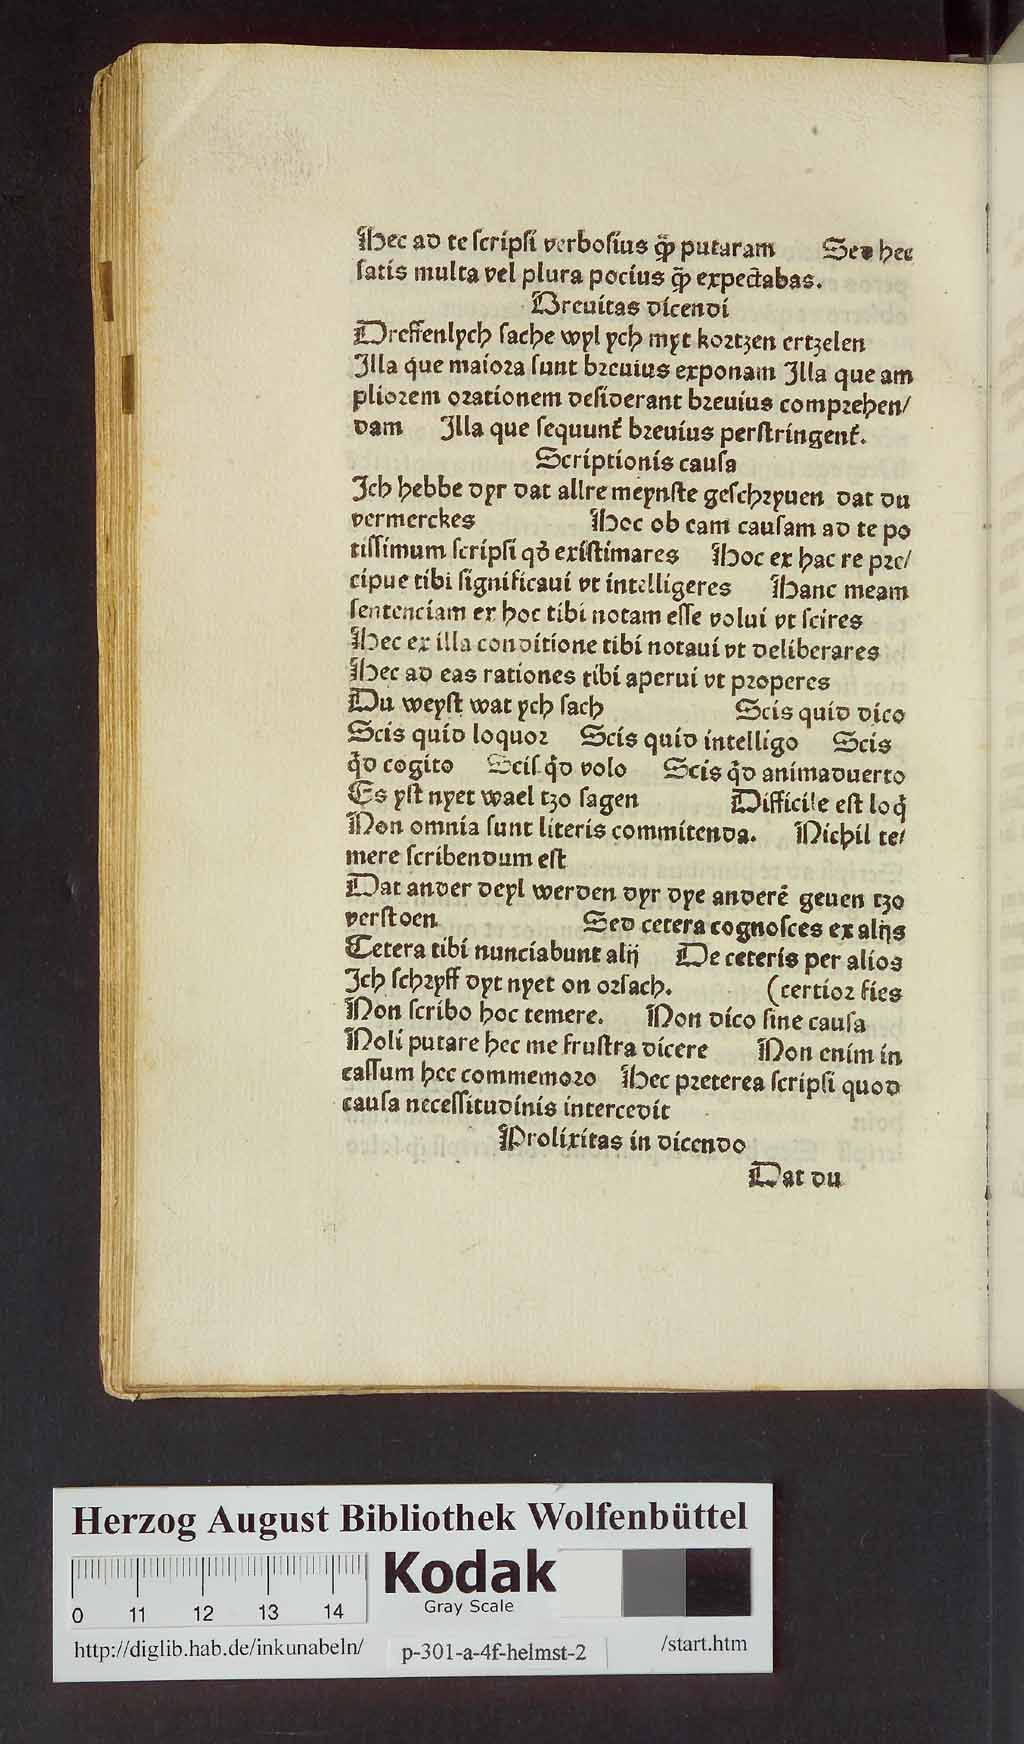 Hec ad te scripsi verbosius q̃ putaram Sed hec
satis multa vel plura pocius q̃ expectabas.
Breuitas dicendi
Dreffenlych sache wyl ych myt kortzen ertzelen
Illa que maiora sunt breuius exponam Illa que am
pliorem orationem desiderant breuius comprehen/
dam Illa que sequunt᷑ breuius perstringent᷑.
Scriptionis causa
Ich hebbe dyr dat allre meynste geschryuen dat du
vermerckes Hec ob eam causam ad te po
tissimum scripsi qd̓ existimares Hoc ex hac re pre/
cipue tibi significaui vt intelligeres Hanc meam
sentenciam ex hoc tibi notam esse volui vt scires
Hec ex illa conditione tibi notaui vt deliberares
Hec ad eas rationes tibi aperui vt properes
Du weyst wat ych sach Scis quid dico
Scis quid loquor Scis quid intelligo Scis
qͥd cogito Scis qͥd volo Scis qͥd animaduerto
Es yst nyet wael tzo sagen Difficile est loqͥ
Non omnia sunt literis commitenda. Nichil te/
mere scribendum est
Dat ander deyl werden dyr dye anderẽ geuen tzo
verstoen Sed cetera cognosces ex alijs
Cetera tibi nunciabunt alij De ceteris per alios
Ich schryff dyt nyet on orsach. (certior fies
Non scribo hoc temere. Non dico sine causa
Noli putare hec me frustra dicere Non enim in
cassum hec commemoro Hec preterea scripsi quod
causa necessitudinis intercedit
Prolixitas in dicendo
Dat du
Herzog August Bibliothek Wolfenbüttel
Kodak
Gray Scale
0 11 12 13 14
http://diglib.hab.de/inkunabeln/ p-301-a-4f-helmst-2 /start.htm